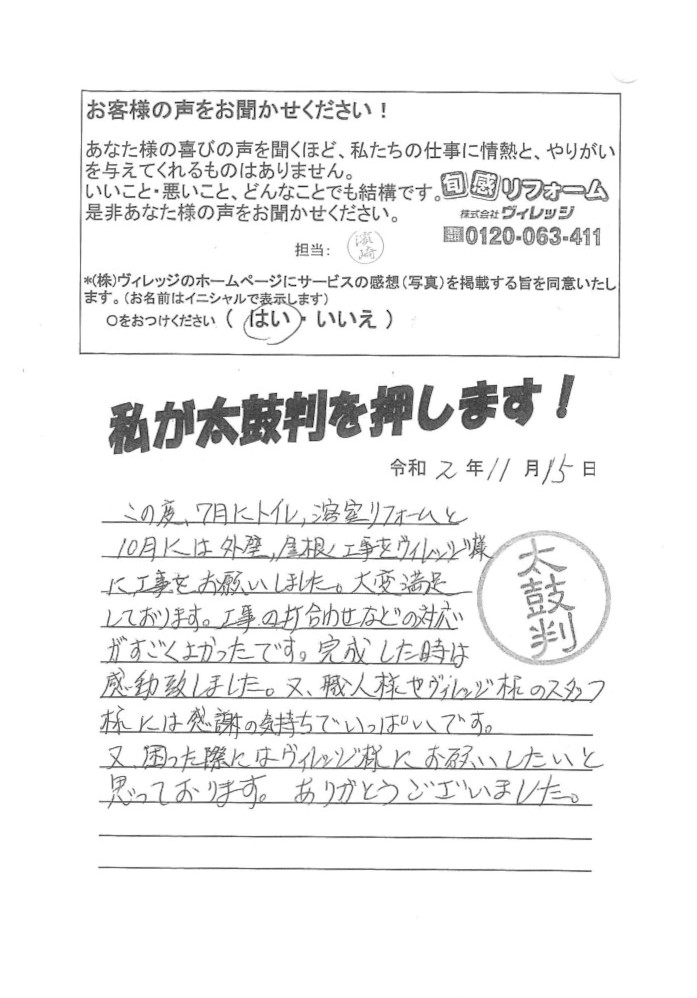 お客様の声をお聞かせください！
あなた様の喜びの声を聞くほど、私たちの仕事に情熱と、やりがい
を与えてくれるものはありません。
いいこと・悪いこと、どんなことでも結構です。
是非あなた様の声をお聞かせください。
旬感リフォーム
株式会社ヴィレッジ
0120-063-411
担当：
濵崎
*(株)ヴィレッジのホームページにサービスの感想（写真）を掲載する旨を同意いたし
ます。（お名前はイニシャルで表示します）
〇をおつけください（ はい ・ いいえ ）
私が太鼓判を押します！
令和 2 年 11 月 15 日
この度、7月にトイレ,浴室リフォームと
10月には外壁,屋根工事をヴィレッジ様
に工事をお願いしました。大変満足
しております。工事の打合わせなどの対応
がすごくよかったです。完成した時は
感動致しました。又、職人様やヴィレッジ様のスタッフ
様には感謝の気持ちでいっぱいです。
又、困った際にはヴィレッジ様にお願いしたいと
思っております。ありがとうございました。
太鼓判